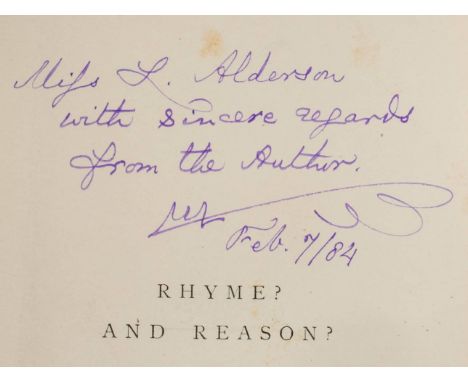 Miss L. Alderson
with sincere regards
from the Author.
Feb. 7/84
RHYME?
AND REASON?